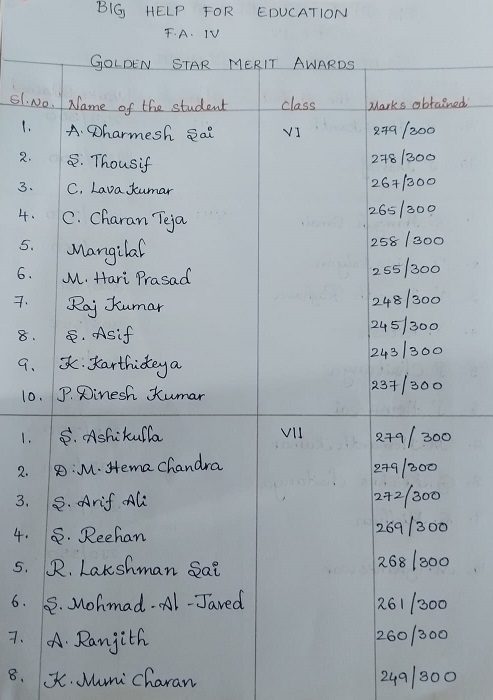 BIG HELP FOR EDUCATION
F.A. IV
GOLDEN STAR MERIT AWARDS
Sl.No. Name of the student class Marks obtained
1. A. Dharmesh Sai VI 279/300
2. S. Thousif 278/300
3. C. Lava Kumar 267/300
4. C. Charan Teja 265/300
5. Mangilal 258/300
6. M. Hari Prasad 255/300
7. Raj Kumar 248/300
8. S. Asif 245/300
9. K. Karthikeya 243/300
10. P. Dinesh Kumar 237/300
1. S. Ashikulla VII 279/300
2. D.M. Hema Chandra 279/300
3. S. Arif Ali 272/300
4. S. Reehan 269/300
5. R. Lakshman Sai 268/300
6. S. Mohmad-Al-Javed 261/300
7. A. Ranjith 260/300
8. K. Muni Charan 249/300